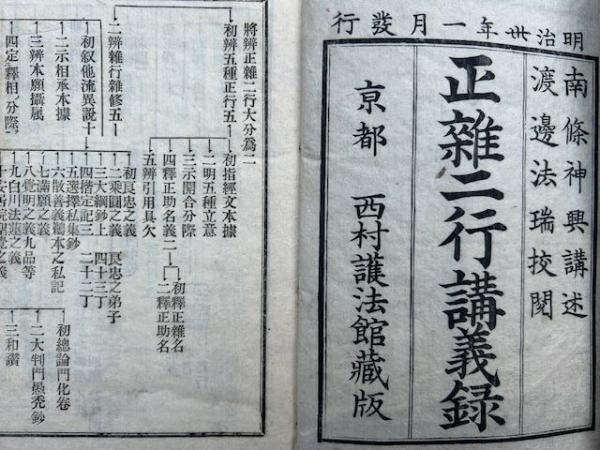 明治丗年一月發行
南條神興講述
渡邊法瑞挍閱
正雜二行講義録
京都 西村護法館藏版
將辨正雜二行大分爲二
初辨五種正行五
初指經文本據
二明五種立意
三示開合分際
四釋正助名義二
初釋正雜名
二釋正助名
五辨引用具欠
二辨雜行雜修五
初叙他流異説十
初良忠之義
二乘圓之義 良忠之弟子
三大綱鈔上 四十三丁
四揩定記三 二十二丁
五選擇私集鈔
六散善義鵜本之私記
七滿願之義
八覺明之義九品等
九白川法蓮之義
二示相承本據
初總論門化卷
二大判門愚禿鈔
三和讃
三辨本願攝属
四定釋相分際